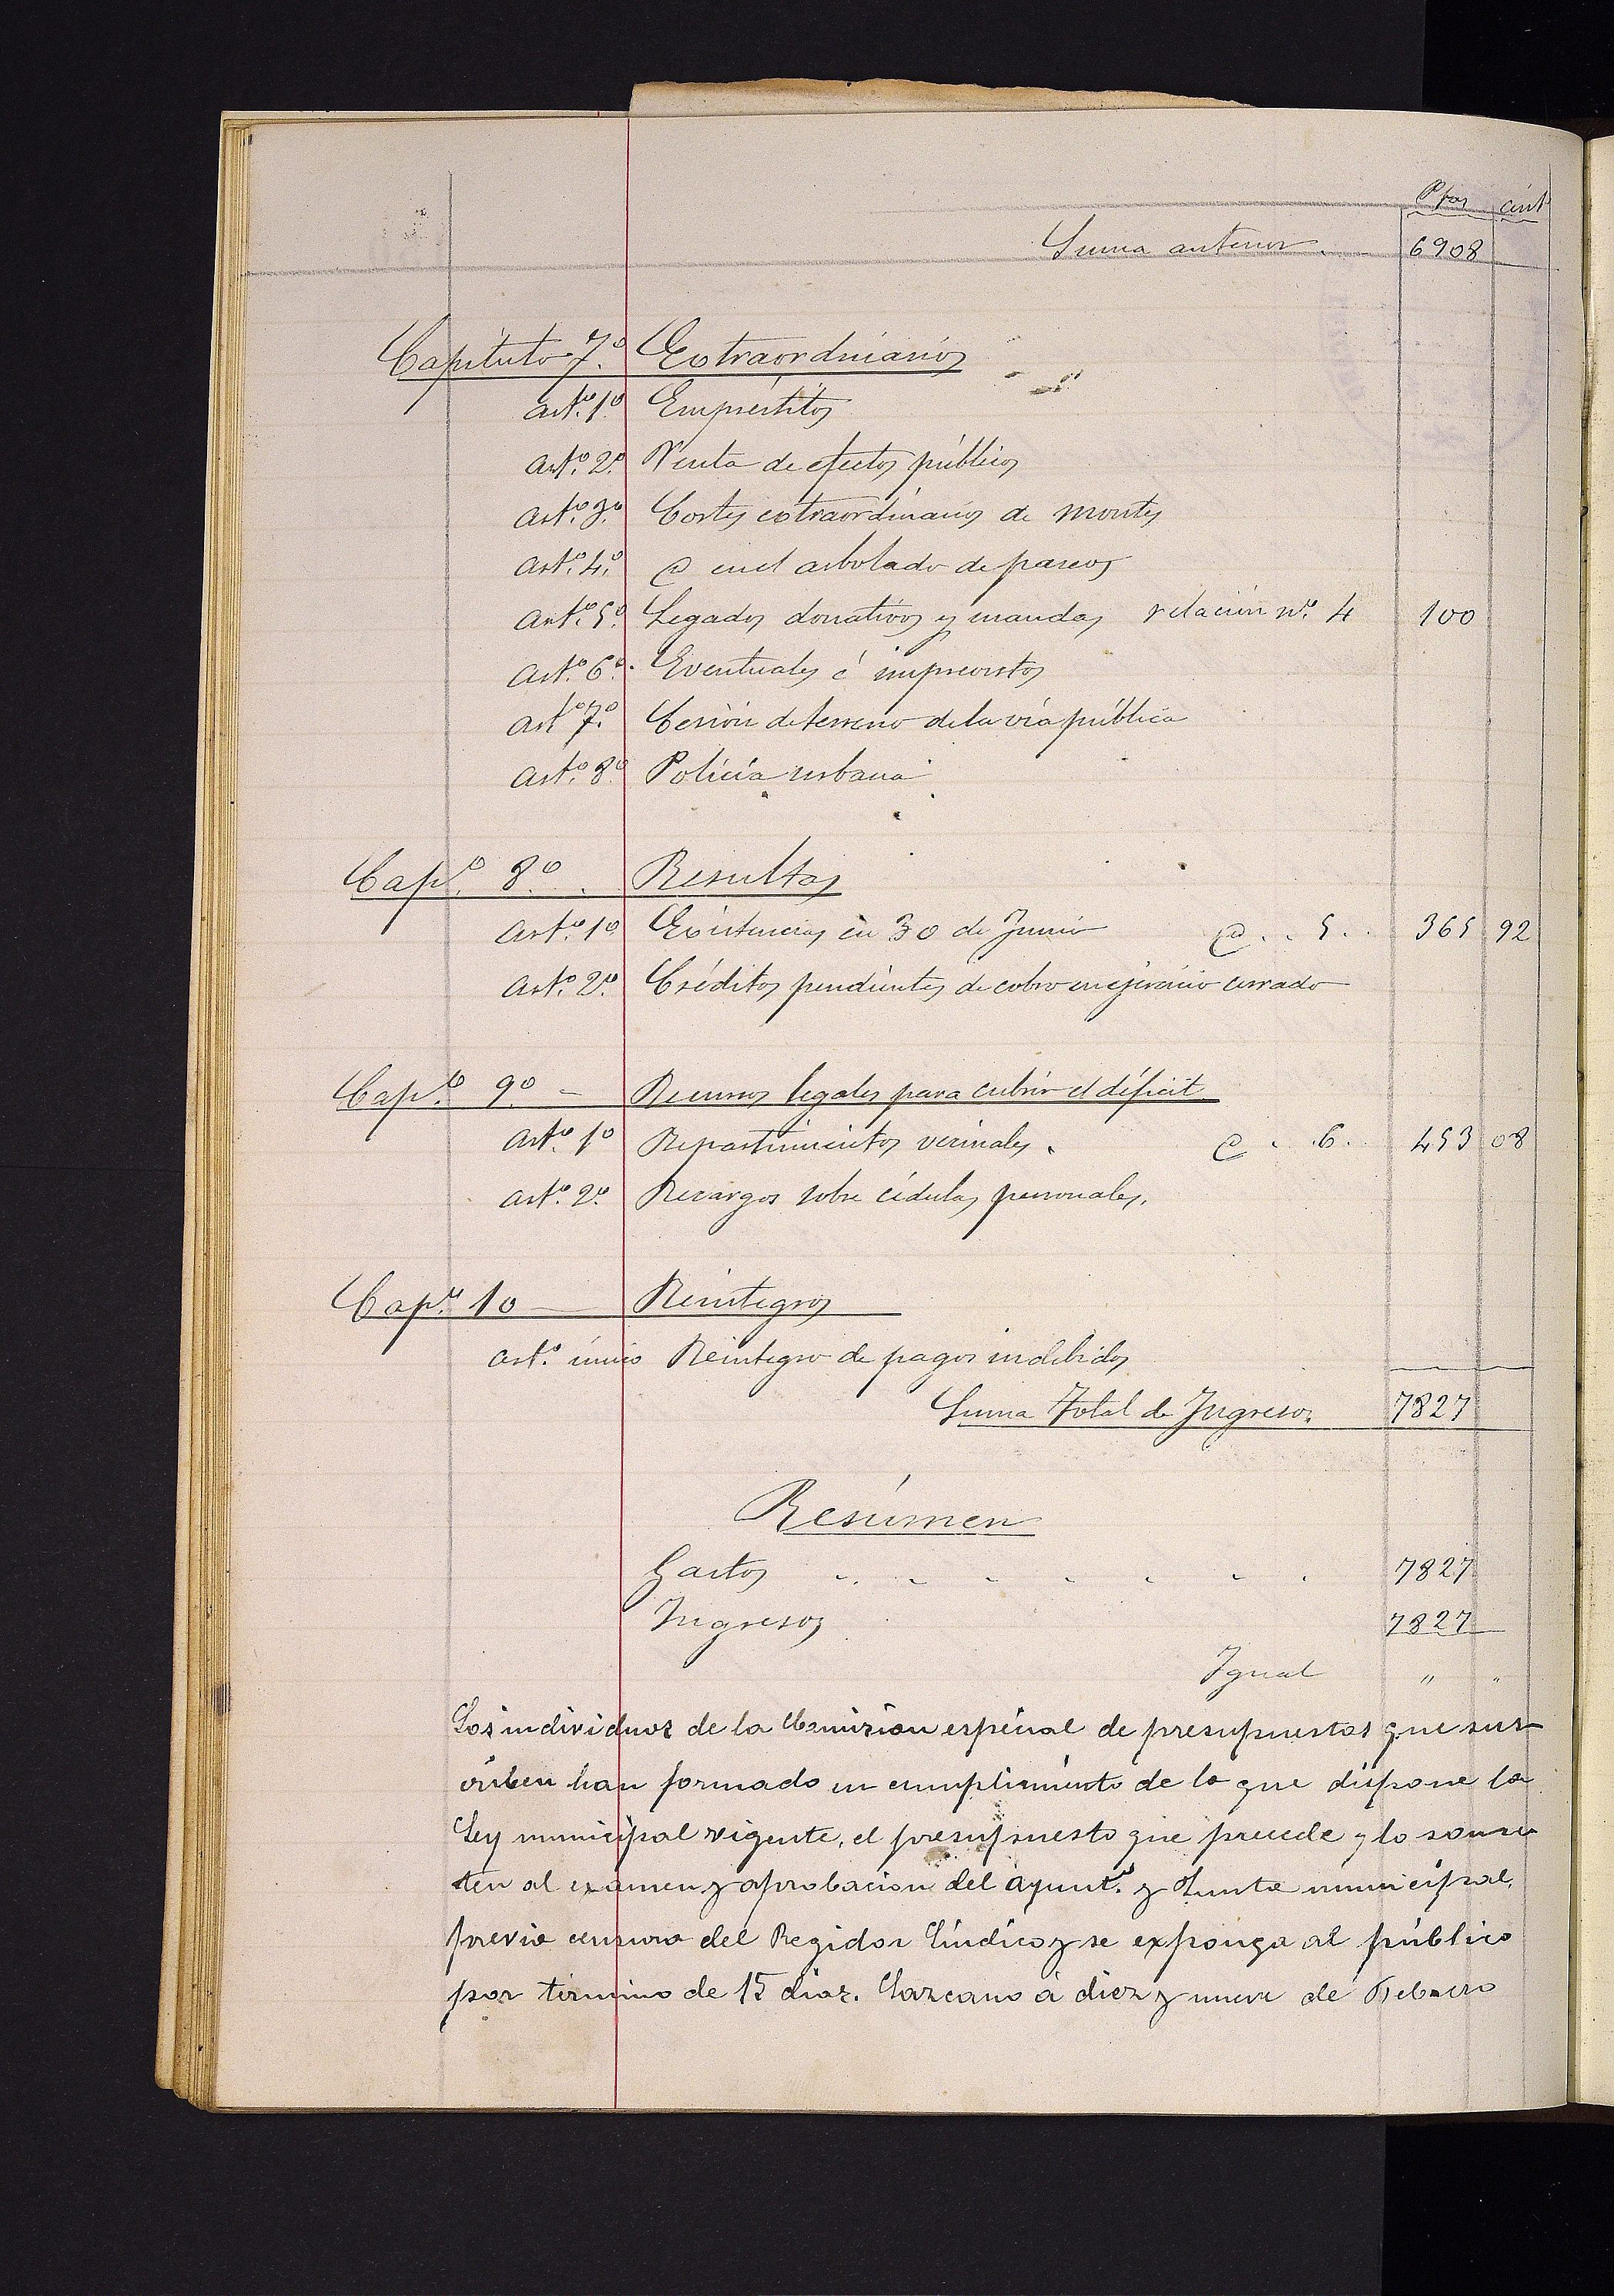 Ptas cént
Suma anterior 6908
Capítulo 7.º Extraordinarios
Art.º 1.º Empréstitos
Art.º 2.º Venta de efectos públicos
Art.º 3.º Cortes extraordinarios de montes
Art.º 4.º @ en el arbolado de paseos
Art.º 5.º Legados donativos y mandas relación nº. 4 100
Art.º 6.º Eventuales é imprevistos
Art.º 7.º Cesión de terreno de la vía pública
Art.º 8.º Policía urbana
Cap.º 8.º Resultas
Art.º 1.º Existencias en 30 de Junio @ . . 5 . . 365 92
Art.º 2.º Créditos pendientes de cobro en ejercicio cerrado
Cap.º 9.º - Recursos legales para cubrir el déficit
Art.º 1.º Repartimientos vecinales. @ . . 6 . . 453 08
Art.º 2.º Recargos sobre cédulas personales.
Cap.º 10 Reintegros
Art.º único Reintegro de pagos indebidos
Suma Total de Ingresos 7827
Resúmen
Gastos . . . . . . . 7827
Ingresos 7827
Igual " "
Los individuos de la Comision especial de presupuestos que sus-
criben han formado en cumplimiento de lo que dispone la
Ley municipal vigente, el presupuesto que precede y lo some
ten al examen y aprobacion del Ayunt.º y Junta municipal,
previa censura del Regidor Síndico y se exponga al público
por término de 15 dias. Lazcano á diez y nueve de Febrero